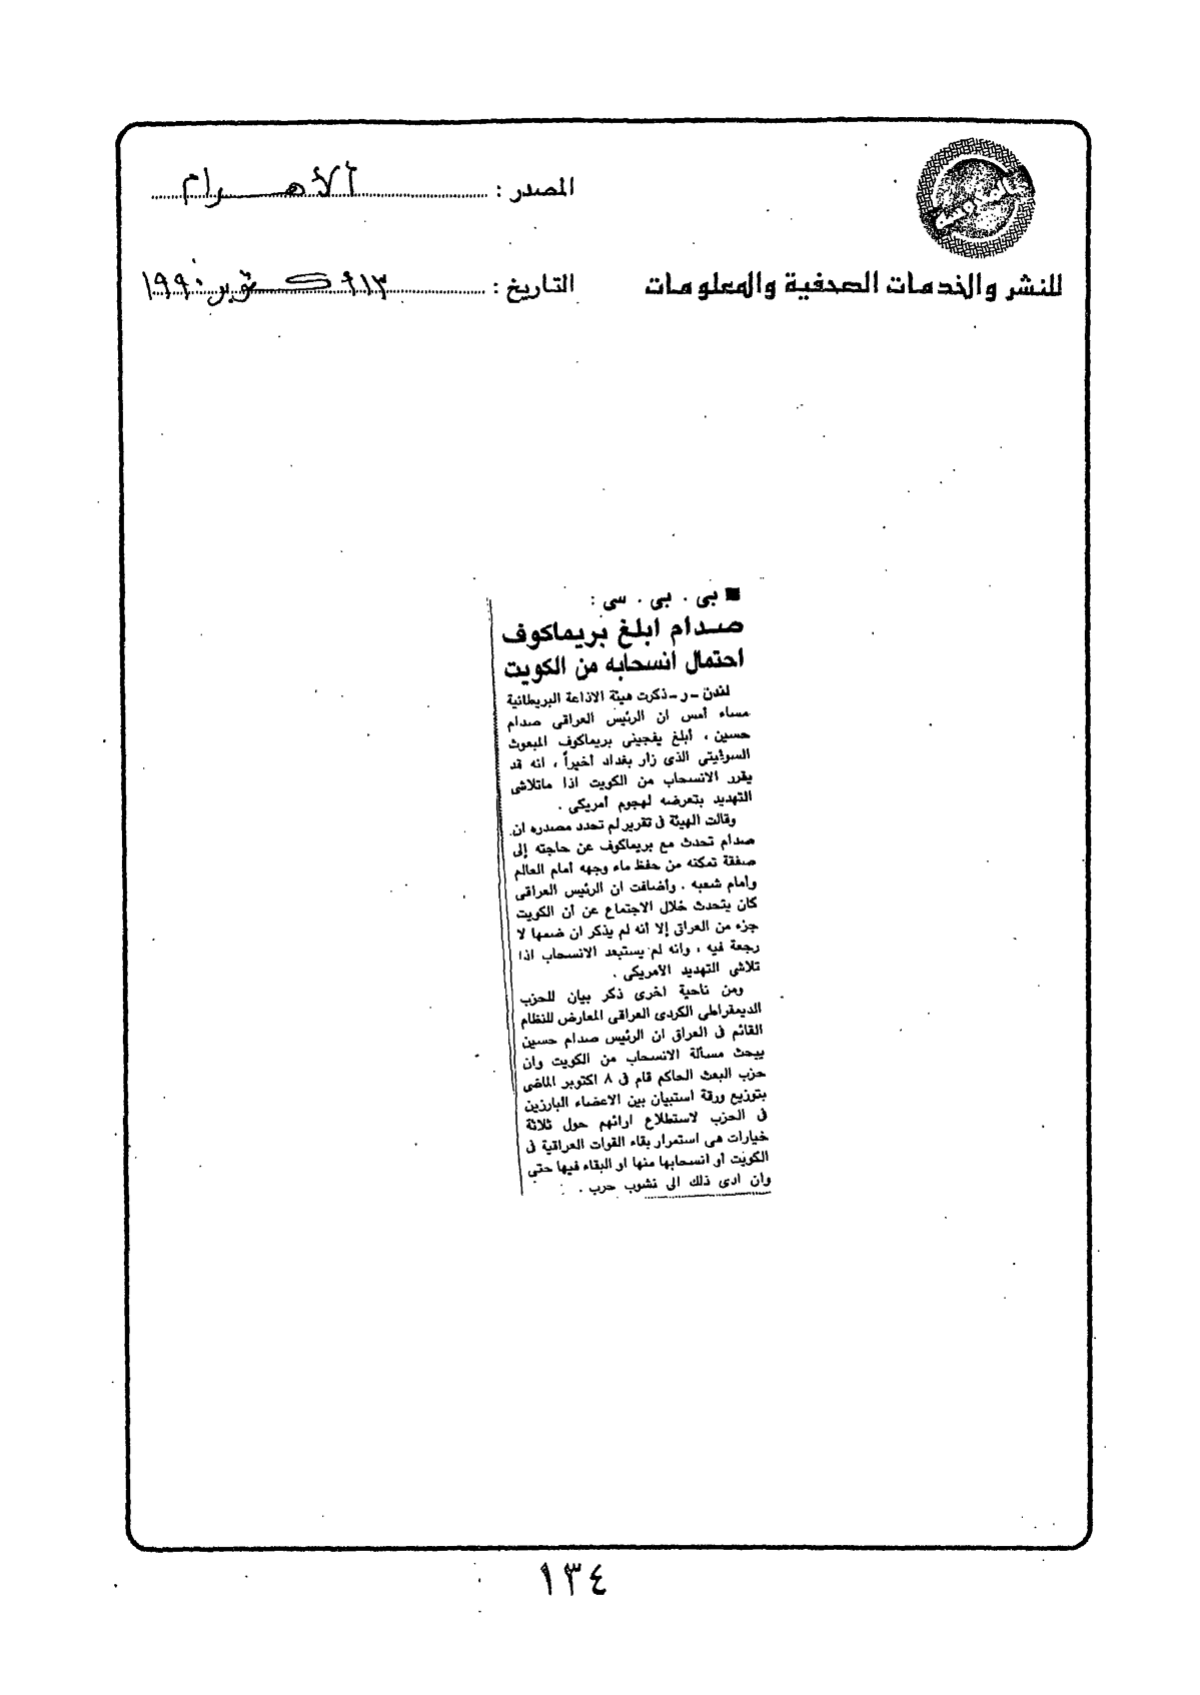 المصدر : الأهرام
للنشر والخدمات الصحفية والمعلومات
التاريخ : ١٣ أكتوبر ١٩٩٠
■ بى . بى . سى :
صدام ابلغ بريماكوف
احتمال انسحابه من الكويت
لندن - ر - ذكرت هيئة الاذاعة البريطانية
مساء أمس ان الرئيس العراقى صدام
حسين ، أبلغ يفجينى بريماكوف المبعوث
السوفيتى الذى زار بغداد أخيراً ، انه قد
يقرر الانسحاب من الكويت اذا ماتلاشى
التهديد بتعرضه لهجوم أمريكى .
وقالت الهيئة فى تقرير لم تحدد مصدره ان
صدام تحدث مع بريماكوف عن حاجته إلى
صفقة تمكنه من حفظ ماء وجهه أمام العالم
وأمام شعبه . وأضافت ان الرئيس العراقى
كان يتحدث خلال الاجتماع عن أن الكويت
جزء من العراق إلا أنه لم يذكر ان ضمها لا
رجعة فيه ، وانه لم يستبعد الانسحاب اذا
تلاشى التهديد الأمريكى .
ومن ناحية اخرى ذكر بيان للحزب
الديمقراطى الكردى العراقى المعارض للنظام
القائم فى العراق ان الرئيس صدام حسين
يبحث مسألة الانسحاب من الكويت وان
حزب البعث الحاكم قام فى ٨ اكتوبر الماضى
بتوزيع ورقة استبيان بين الاعضاء البارزين
فى الحزب لاستطلاع ارائهم حول ثلاثة
خيارات هى استمرار بقاء القوات العراقية فى
الكويت أو انسحابها منها او البقاء فيها حتى
وان ادى ذلك الى نشوب حرب .
١٣٤